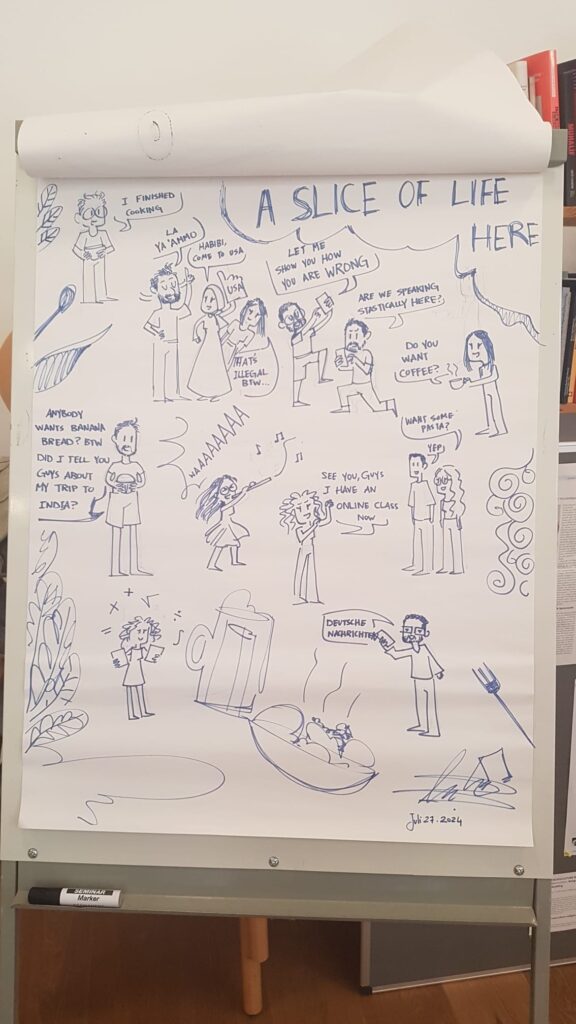 A SLICE OF LIFE
HERE
I FINISHED
COOKING
LA
YA'AMMO
HABIBI,
COME TO USA
USA
THATS
ILLEGAL
BTW...
LET ME
SHOW YOU HOW
YOU ARE WRONG
ARE WE SPEAKING
STASTICALLY HERE?
DO YOU
WANT
COFFEE?
ANYBODY
WANTS BANANA
BREAD? BTW
DID I TELL YOU
GUYS ABOUT
MY TRIP TO
INDIA?
WAAAAAAAA
SEE YOU, GUYS
I HAVE AN
ONLINE CLASS
NOW
WANT SOME
PASTA?
YEP
x + √
=
DEUTSCHE
NACHRICHTEN
Juli 27. 2024
SEMINAR
Marker